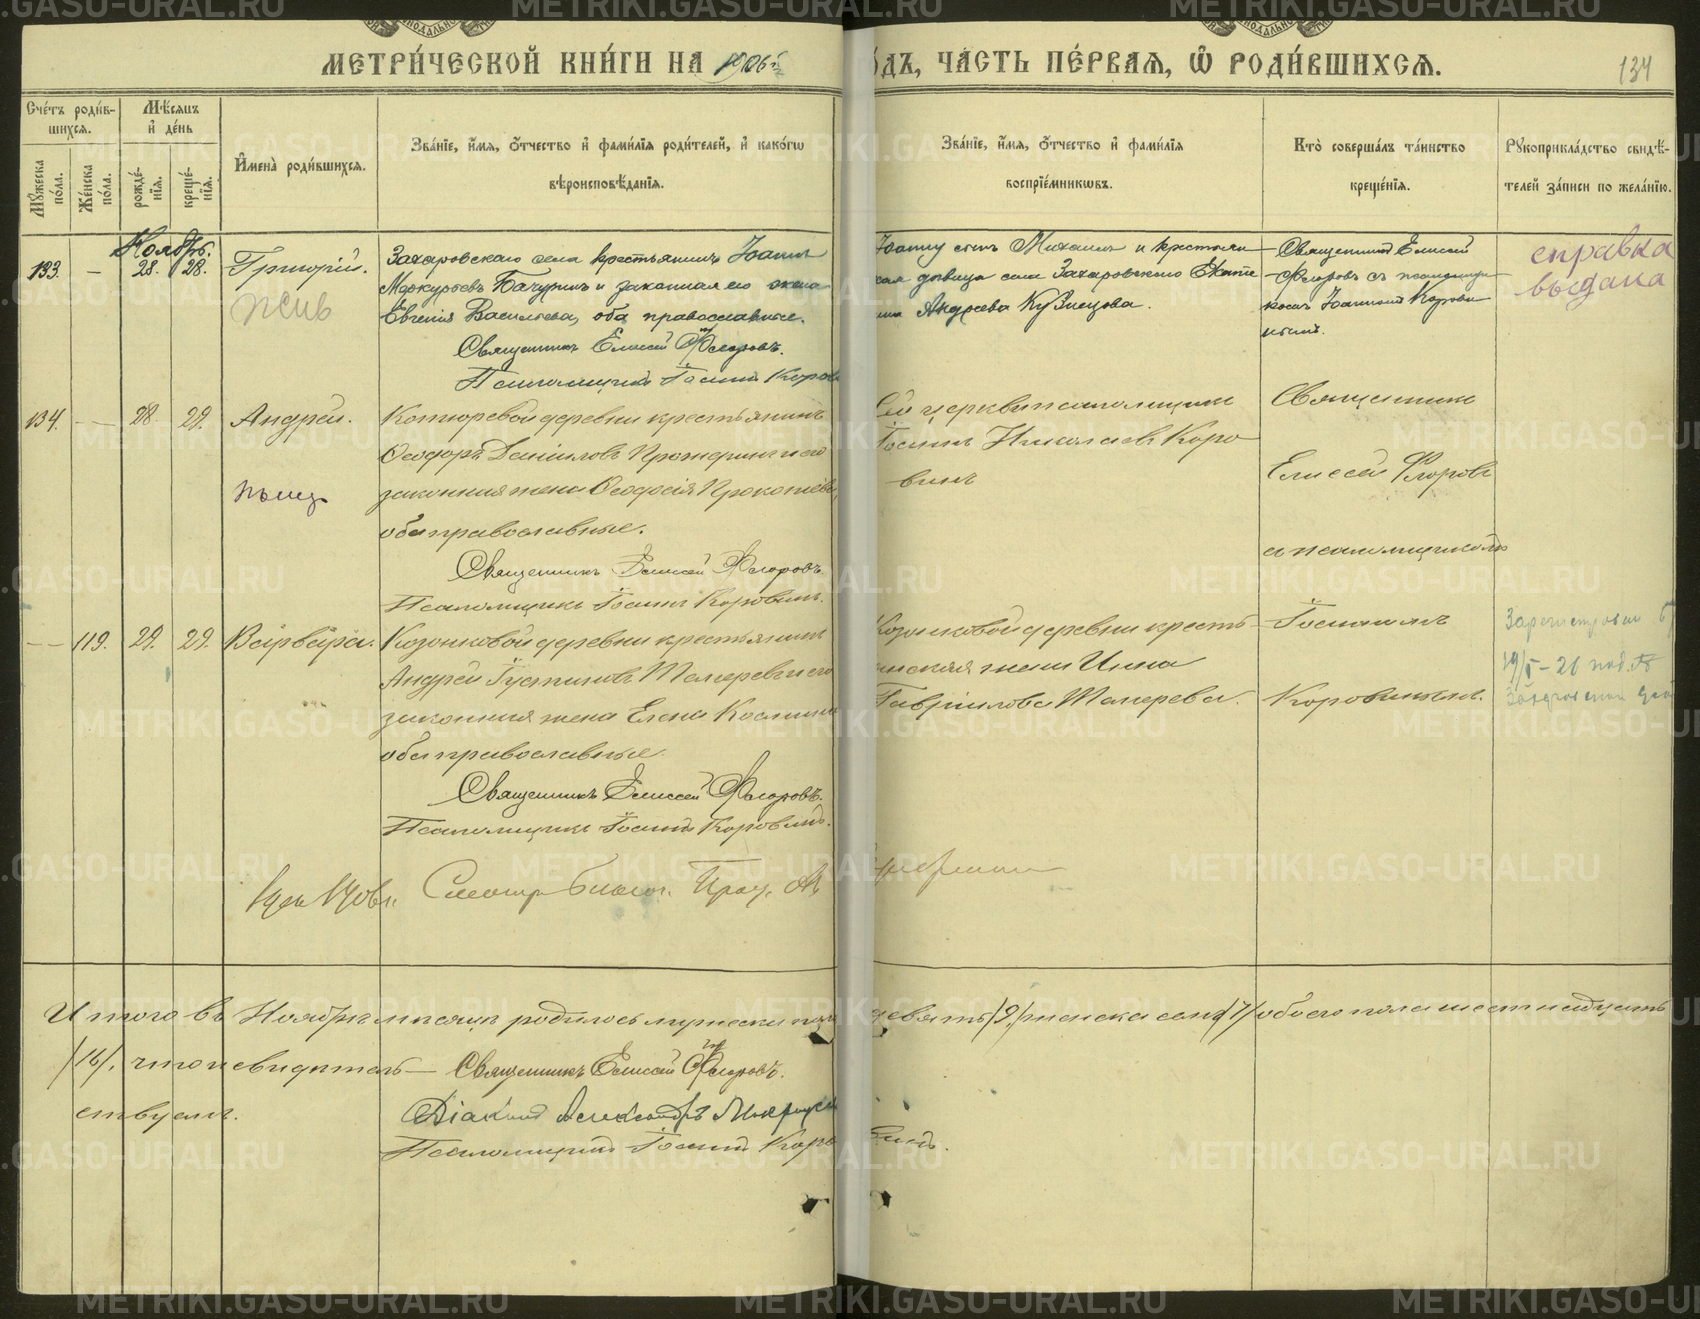 МЕТРИ́ЧЕСКОЙ КНИ́ГИ НА 1906й
ГО́ДЪ, ЧА́СТЬ ПЕ́РВАЯ, Ѽ РОДИ́ВШИХСЯ.
134
Сче́тъ роди́в-
шихся.
Мѣ́сяцъ
и҆ де́нь
Мꙋ́жеска
по́ла.
Же́нска
по́ла.
рожде́-
нїя.
креще́-
нїя.
И҆мена̀ роди́вшихся.
Зва́нїе, и҆́мя, ѻ҆́тчество и҆ фами́лїя роди́телей, и҆ како́гѡ
вѣроисповѣ́данїя.
Зва́нїе, и҆́мя, ѻ҆́тчество и҆ фами́лїя
воспрїе́мникѡвъ.
Кто̀ соверша́лъ та́инство
креще́нїя.
Рꙋкоприкла́дство свидѣ́-
телей за́писи по жела́нїю.
Ноябрь.
133. — 28. 28. Григорій.
жив
Захаровскаго села крестьянинъ Іоаннъ
Меркурьевъ Бачуринъ и законная его жена
Евгенія Васильева, оба православные.
Священникъ Елисей Флоровъ.
Псаломщикъ Іоаннъ Коров
сынъ Михаилъ и крестьян
ская дѣвица села Захаровскаго Екате
Андреева Кузнецова.
Священникъ Елисей
Флоровъ съ псаломщи
комъ Іоанномъ Корови
нымъ.
справка
выдана
134. — 28. 29. Андрей.
деревни крестьянинъ
Ѳеодоръ Даниловъ и его
законная жена Ѳеодосія Прокопьева,
оба православные.
Священникъ Елисей Флоровъ.
Псаломщикъ Іоаннъ Коровинъ.
Сей церкви псаломщикъ
Іоаннъ Николаевъ Коро
винъ
Священникъ
Елисей Флоровъ
съ псаломщикомъ
— 119. 29. 29. Варвара.
деревни крестьянинъ
Андрей Іустиновъ и его
законная жена Елена Косьмина
оба православные
Священникъ Елисей Флоровъ.
Псаломщикъ Іоаннъ Коровинъ.
деревни кресть
янская жена Анна
Гавриилова
Іоанномъ
Коровинымъ.
19/V-26
Итого въ Ноябрѣ мѣсяцѣ родилось мужеска пола
девять /9/ женска семь /7/ обоего пола шестнадцать
/16/, что и свидѣтель—
ствуемъ.
Священникъ Елисей Флоровъ.
Діаконъ Александръ
Псаломщикъ Іоаннъ Коро
винъ.
METRIKI.GASO-URAL.RU